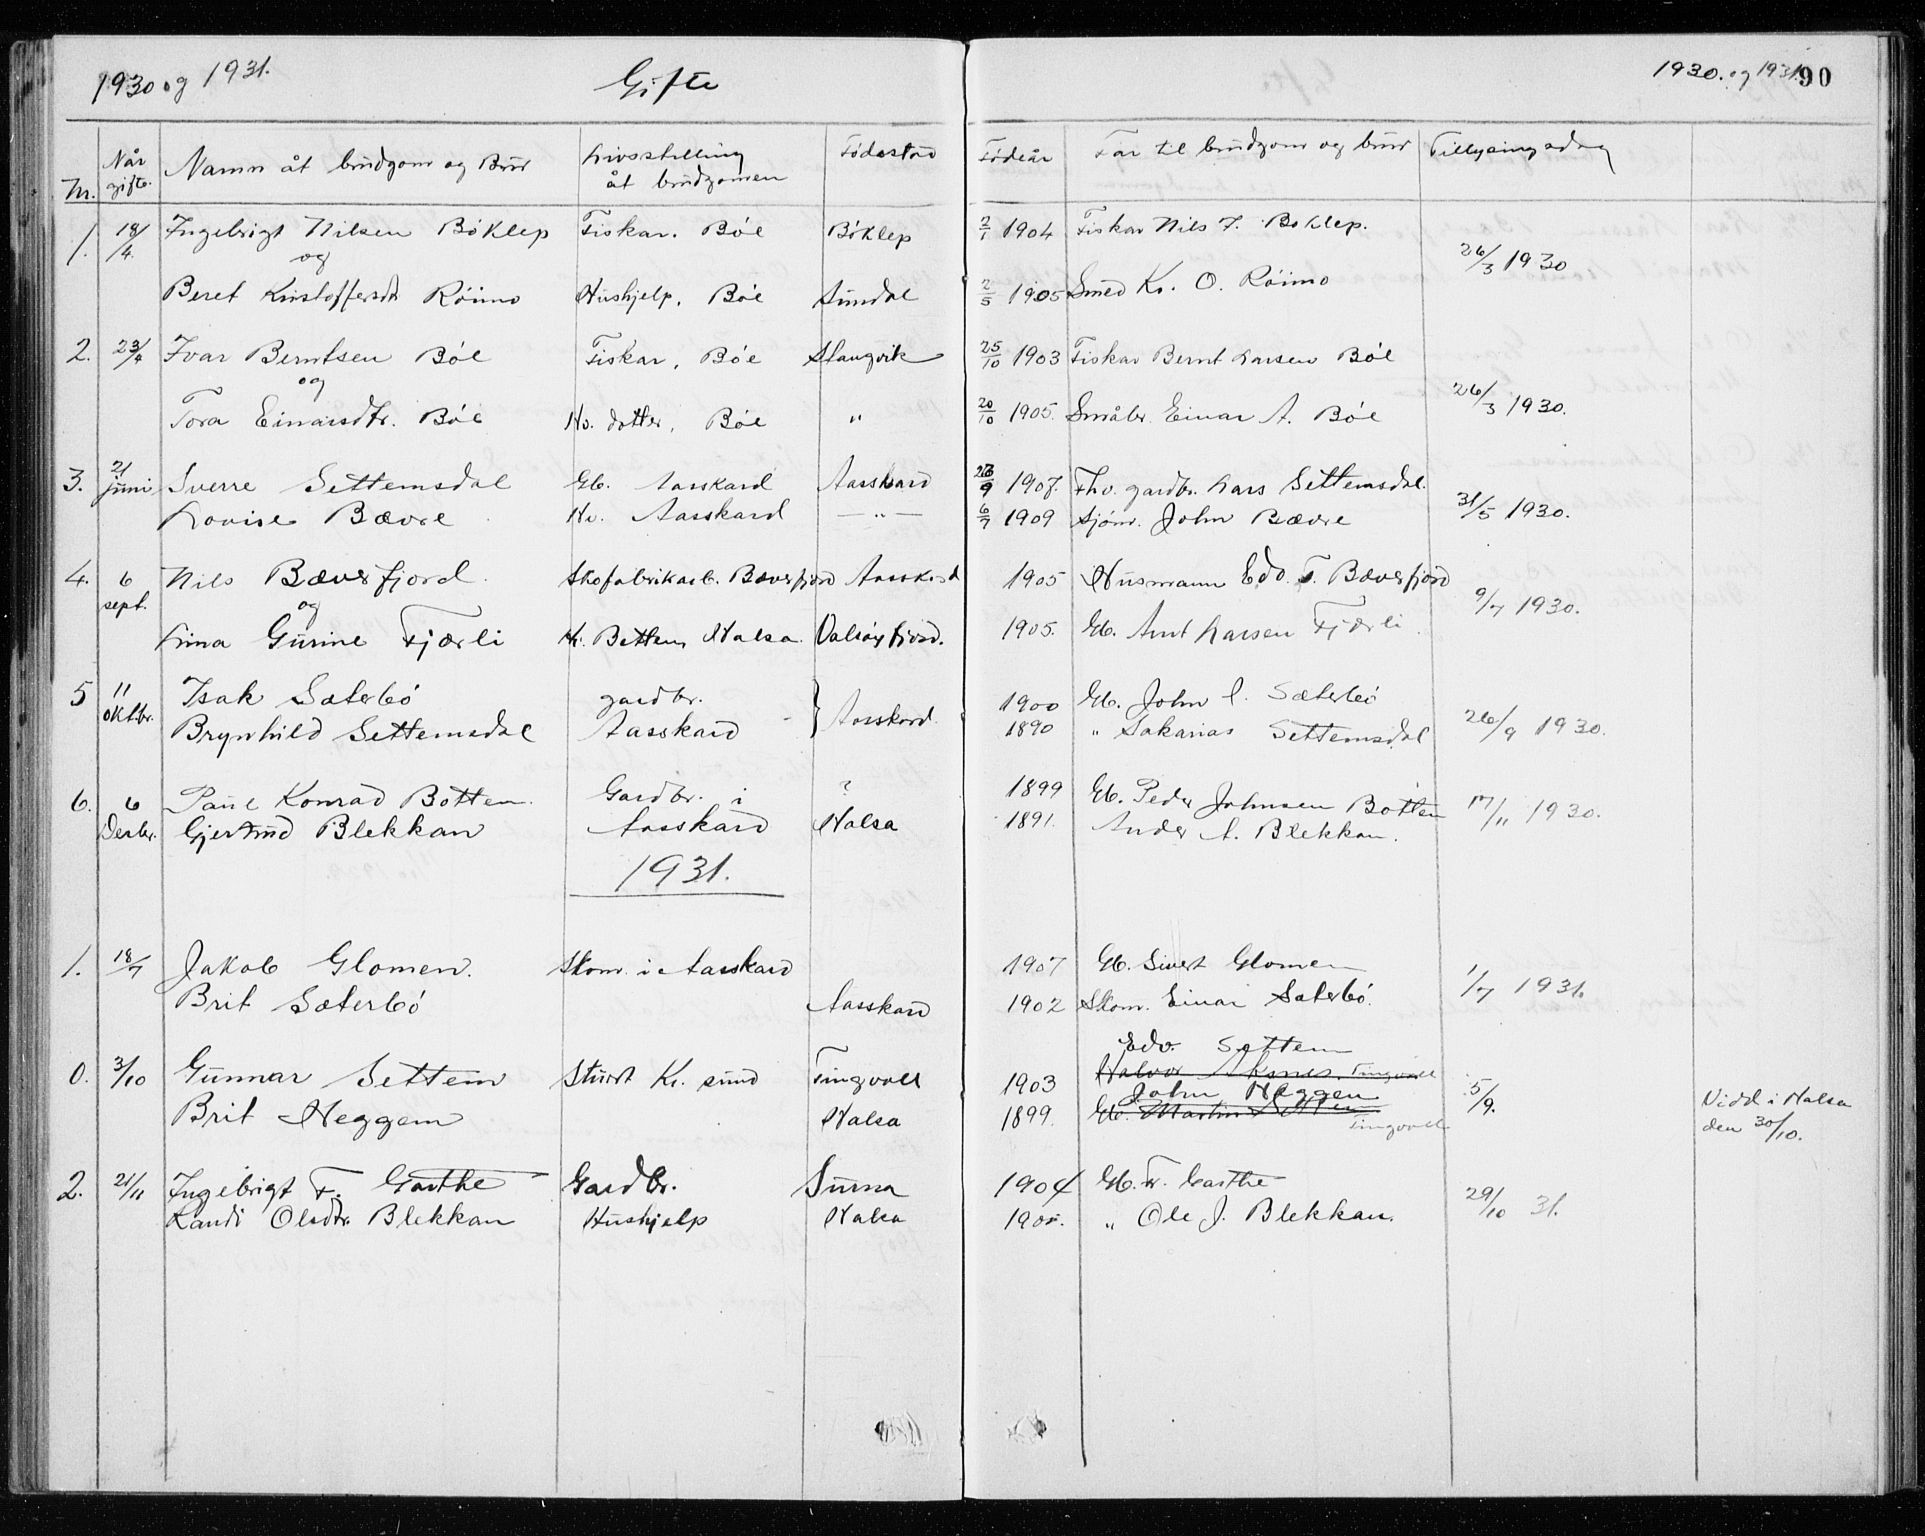 1930 og 1931. Gifte 1930. og 1931. 90
Nr. Når gifte. Namn åt brudgom og Brur Livsstilling åt brudgomen Fødestad Fødeår Far til brudgom og brur Tillysingsdag
1. 18/4. Ingebrigt Nilsen Böklep Fiskar. Böe Böklep 2/1 1904 Fiskar Nils J. Boklep.
og 26/3 1930
Beret Kristoffersdtr Röimo Hushjelp, Böe Sundal 2/5 1905 Smed Kr. O. Röimo
2. 23/4 Ivar Berntsen Böe Fiskar, Böe Stangvik 25/10 1903 Fiskar Bernt Larsen Böe
og 26/3 1930.
Tora Einarsdtr. Böe Hv. dotter, Böe " 20/10 1905. Småbr. Einar A. Böe
3. 21 juni Sverre Settemsdal Gb. Aasskard Aasskard 1907. Fhv. gardbr. Lars Settemsdal. 31/5 1930.
Lovise Bævre Hv. Aasskard — " — 6/7 1909 Sjöm. John Bævre
4. 6 sept. Nils Bæverfjord. Skofabrikarb. Bæverfjord Aasskard 1905 Husmann Edv. T. Bæverfjord
og 9/7 1930.
Lina Gurine Fjærli Hv. Betten, Halsa. Valsöyfjord. 1905. Gb. Arnt Larsen Fjærli.
5 11 oktbr. Isak Sæterbö gardbr. Aasskard 1900 Gb. John I. Sæterbö 26/9 1930.
Brynhild Settemsdal Aasskard 1890 " Sakarias Settemsdal
6. 6 Desbr. Paul Konrad Botten. Gardbr. i ? 1899 Gb. Peder Johnsen Botten 17/11 1930.
Gjertrud Blekkan Aasskard Halsa 1891. Ander A. Blekkan.
1931.
1. 18/7 Jakob Glomen. Skom. i Aasskard 1907 Gb. Sivert Glomen 1/7 1931.
Brit Sæterbö Aasskard 1902 Skom. Einar Sæterbö.
Edv. Settem
0. 3/10 Gunnar Settem Stuert Kr. sund Tingvoll 1903 Halvor Aknes. Tingvoll 5/9.
John Heggem
Brit Heggem Halsa 1899. Gb. Martin Settem Tingvoll Vidd i Halsa den 30/10.
2. 21/11 Ingebrigt F. Garthe Gardbr. Surna 1904 Gb. Fr. Garthe 29/10 31.
Randi Olsdtr. Blekkan Hushjelp Halsa 1905. " Ole J. Blekkan.